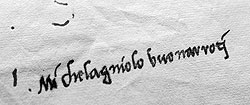 1. Michelagniolo buonarroti